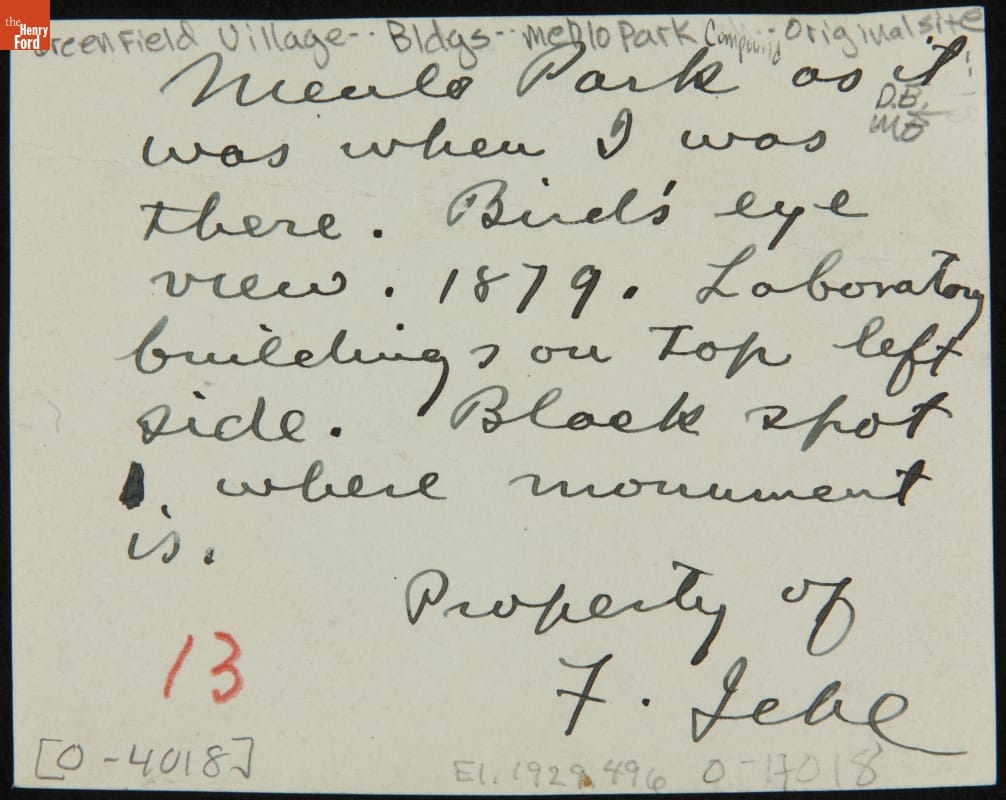 the
Henry
Ford
Greenfield Village-- Bldgs-- Menlo Park Compound -- Original site
Menlo Park as it
D.B.
MB
was when I was
there. Bird's eye
view. 1879. Laboratory
buildings on top left
side. Black spot
where monument
is.
Property of
F. Jehl
13
[0-4018]
E1.1929.496 0-17018